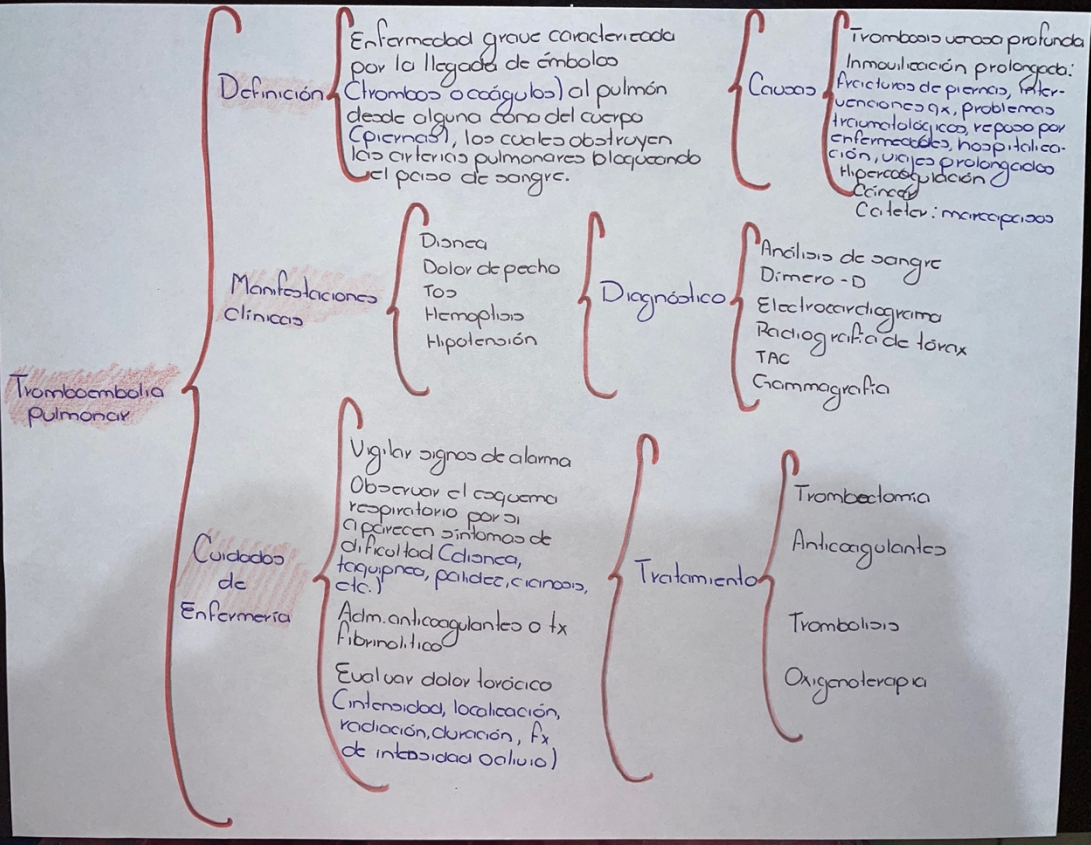 Tromboembolia
pulmonar
Definición
Enfermedad grave caracterizada
por la llegada de émbolos
(trombos o coágulos) al pulmón
desde alguna zona del cuerpo
(piernas), los cuales obstruyen
las arterias pulmonares bloqueando
el paso de sangre.
Causas
Trombosis venosa profunda
Inmovilización prolongada:
fracturas de piernas, inter-
venciones qx, problemas
traumatológicos, reposo por
enfermedades, hospitaliza-
ción, viajes prolongados
Hipercoagulación
Cáncer
Catéter: marcapasos
Manifestaciones
clínicas
Disnea
Dolor de pecho
Tos
Hemoptisis
Hipotensión
Diagnóstico
Análisis de sangre
Dímero-D
Electrocardiograma
Radiografía de tórax
TAC
Gammagrafía
Cuidados
de
Enfermería
Vigilar signos de alarma
Observar el esquema
respiratorio por si
aparecen síntomas de
dificultad (disnea,
taquipnea, palidez, cianosis,
etc.)
Adm. anticoagulantes o tx
fibrinolítico
Evaluar dolor torácico
(intensidad, localización,
radiación, duración, fx
de intesidad o alivio)
Tratamiento
Trombectomía
Anticoagulantes
Trombolisis
Oxigenoterapia